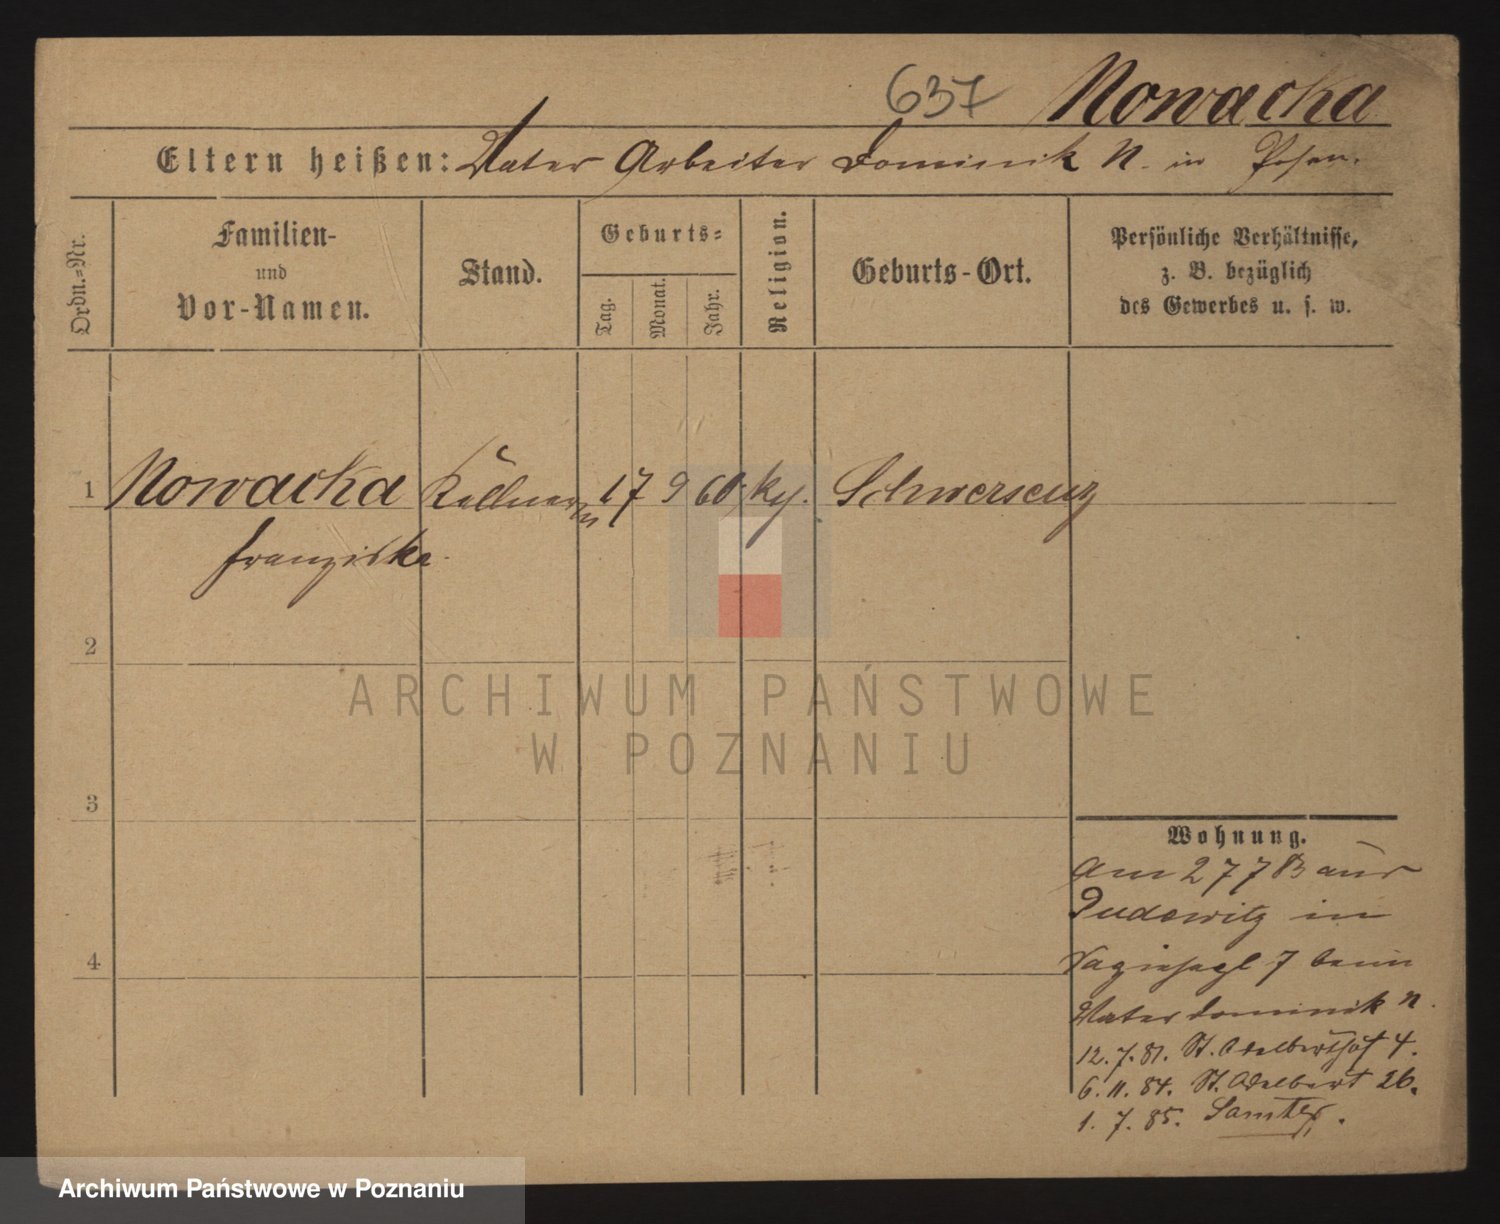 637 Nowacka
Eltern heißen: Vater Arbeiter Dominik N. in Posen.
Ordn.=Nr.
Familien-
und
Vor-Namen.
Stand.
Geburts=
Tag.
Monat.
Jahr.
Religion.
Geburts-Ort.
Persönliche Verhältnisse,
z. B. bezüglich
des Gewerbes u. s. w.
1 Nowacka Kellnerin 17 9 60 kg. Schwersenz
Franziska.
2
3
4
Wohnung.
am 27 7 aus
Pudewitz in
7 beim
Vater Dominik N.
12. 7. 81. St. Adalberthof 4.
6. 11. 84. St. Adalbert 26.
1. 7. 85. Samter.
ARCHIWUM PAŃSTWOWE
W POZNANIU
Archiwum Państwowe w Poznaniu